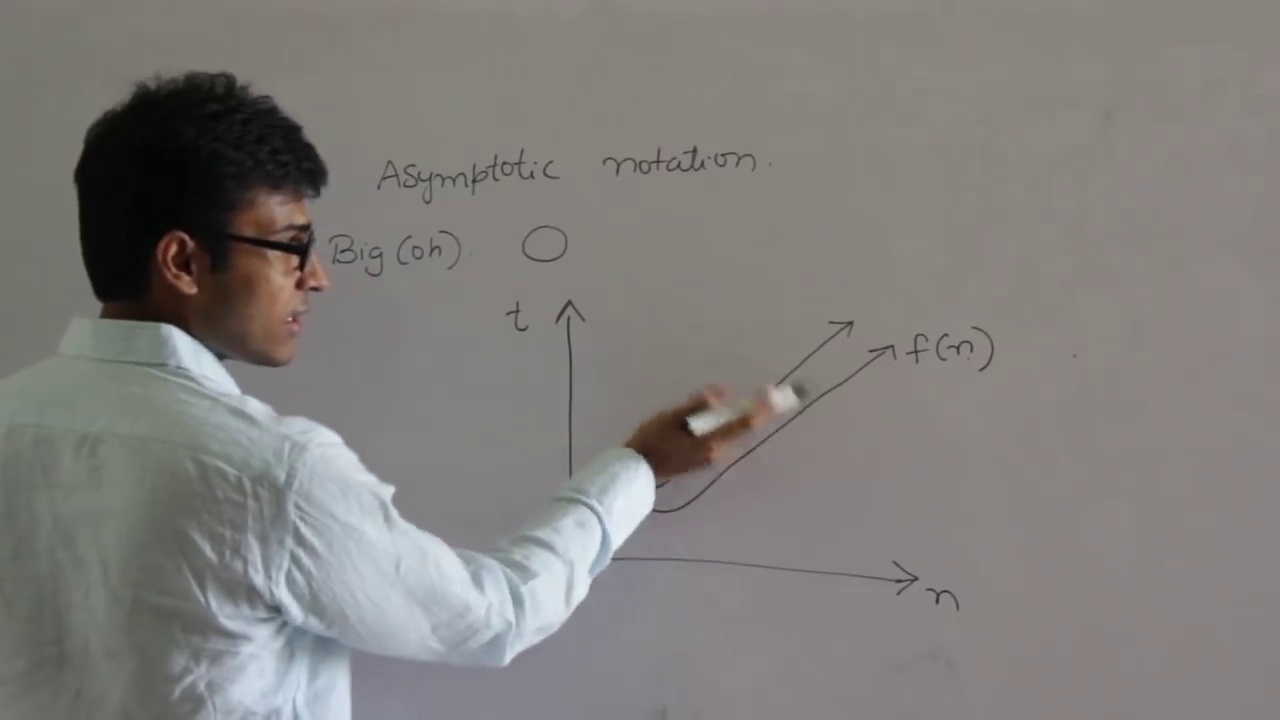 Asymptotic notation.
Big (oh). O
t
f(n)
n